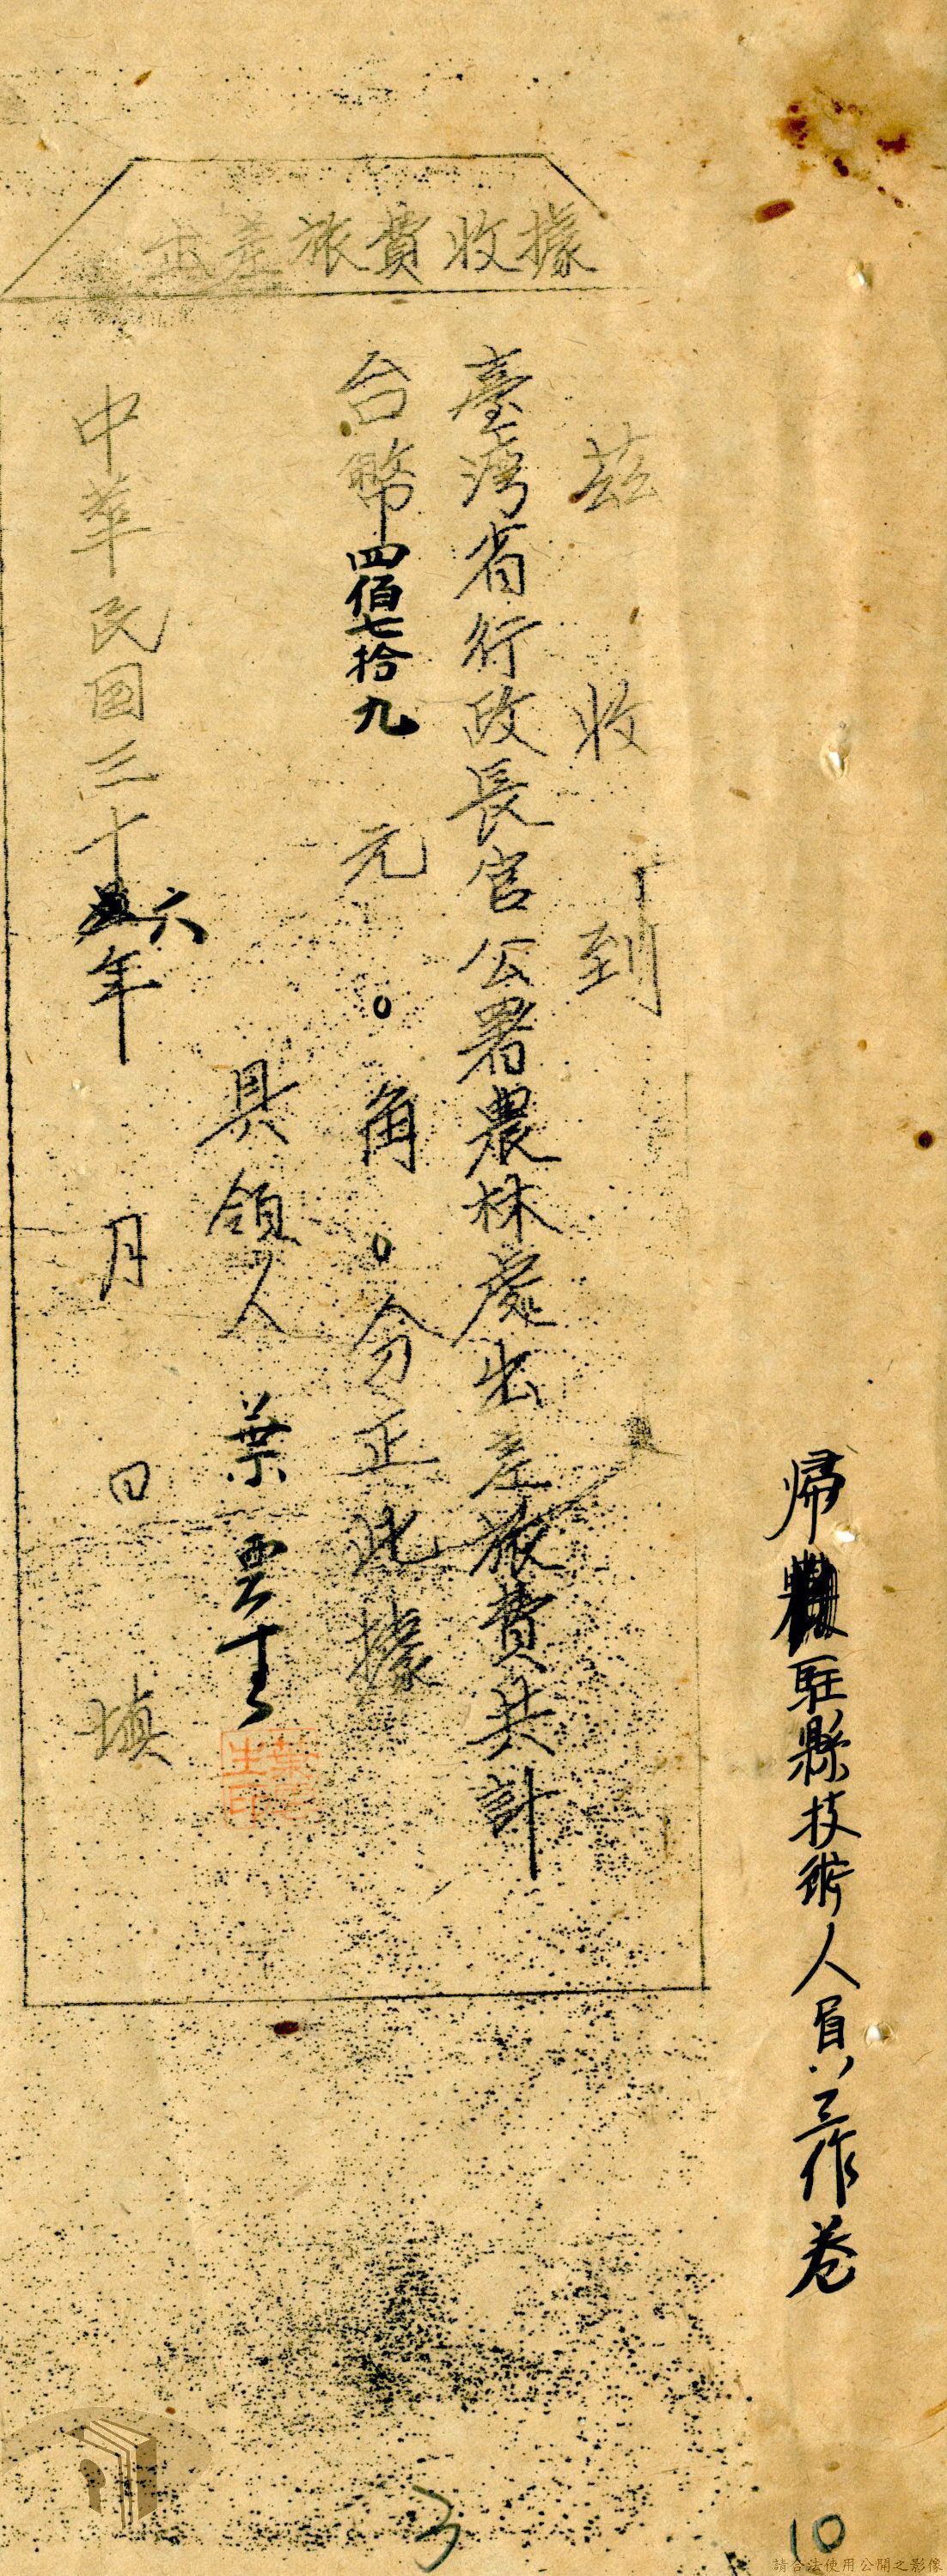 出差旅費收據
茲收到
臺灣省行政長官公署農林處出差旅費共計
台幣四佰七拾九元0角0分正此據
具領人 葉雲生
中華民國三十六年 月 日填
歸 駐縣技術人員工作卷
3
10
請合法使用公開之影像